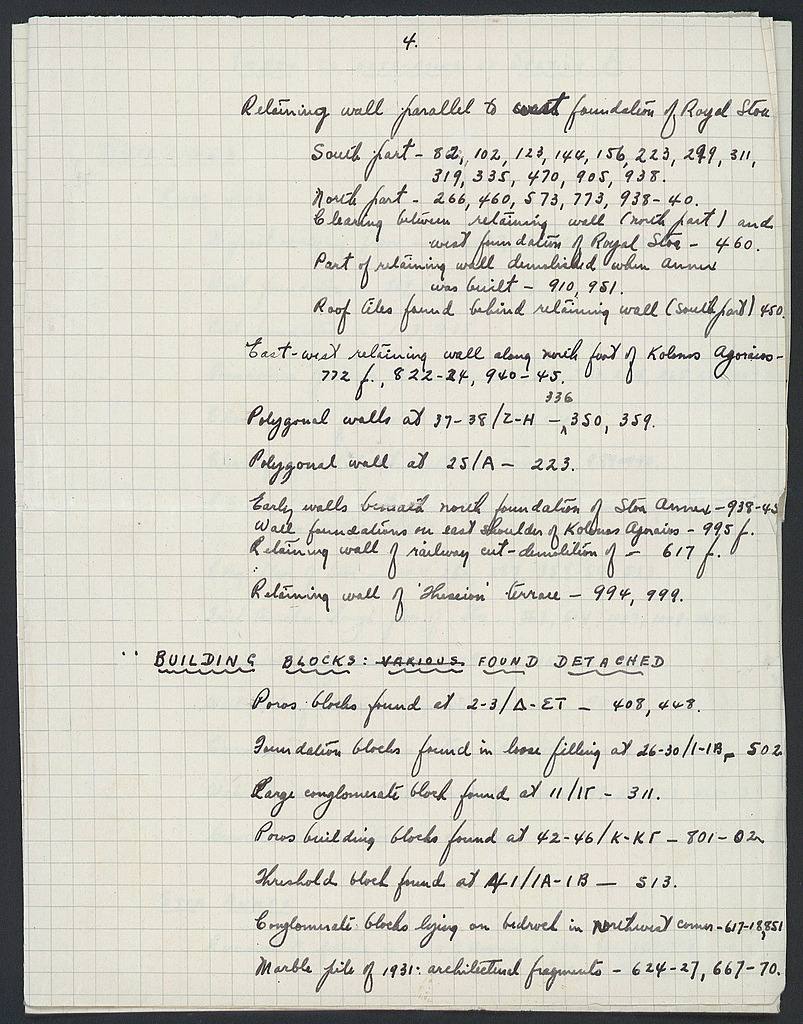 4.
Retaining wall parallel to west foundation of Royal Stoa
South part - 82, 102, 123, 144, 156, 223, 299, 311,
319, 335, 470, 905, 938.
North part - 266, 460, 573, 773, 938-40.
Clearing between retaining wall (north part) and
west foundation of Royal Stoa - 460.
Part of retaining wall demolished when Annex
was built - 910, 951.
Roof tiles found behind retaining wall (south part) 450.
East-west retaining wall along north foot of Kolonos Agoraios -
772 f., 822-24, 940-45.
336
Polygonal walls at 37-38/Ζ-Η - 350, 359.
Polygonal wall at 25/Α - 223.
Early walls beneath north foundation of Stoa Annex - 938-45
Wall foundations on east shoulder of Kolonos Agoraios - 995 f.
Retaining wall of railway cut - demolition of - 617 f.
Retaining wall of 'Theseion' terrace - 994, 999.
BUILDING BLOCKS: VARIOUS FOUND DETACHED
Poros blocks found at 2-3/Δ-ΣΤ - 408, 448.
Foundation blocks found in loose filling at 26-30/Ι-ΙΒ - 502
Large conglomerate block found at 11/ΙΓ - 311.
Poros building blocks found at 42-46/Κ-ΚΓ - 801-02
Threshold block found at 41/ΙΑ-ΙΒ - 513.
Conglomerate blocks lying on bedrock in northwest corner - 617-18, 851
Marble pile of 1931: architectural fragments - 624-27, 667-70.